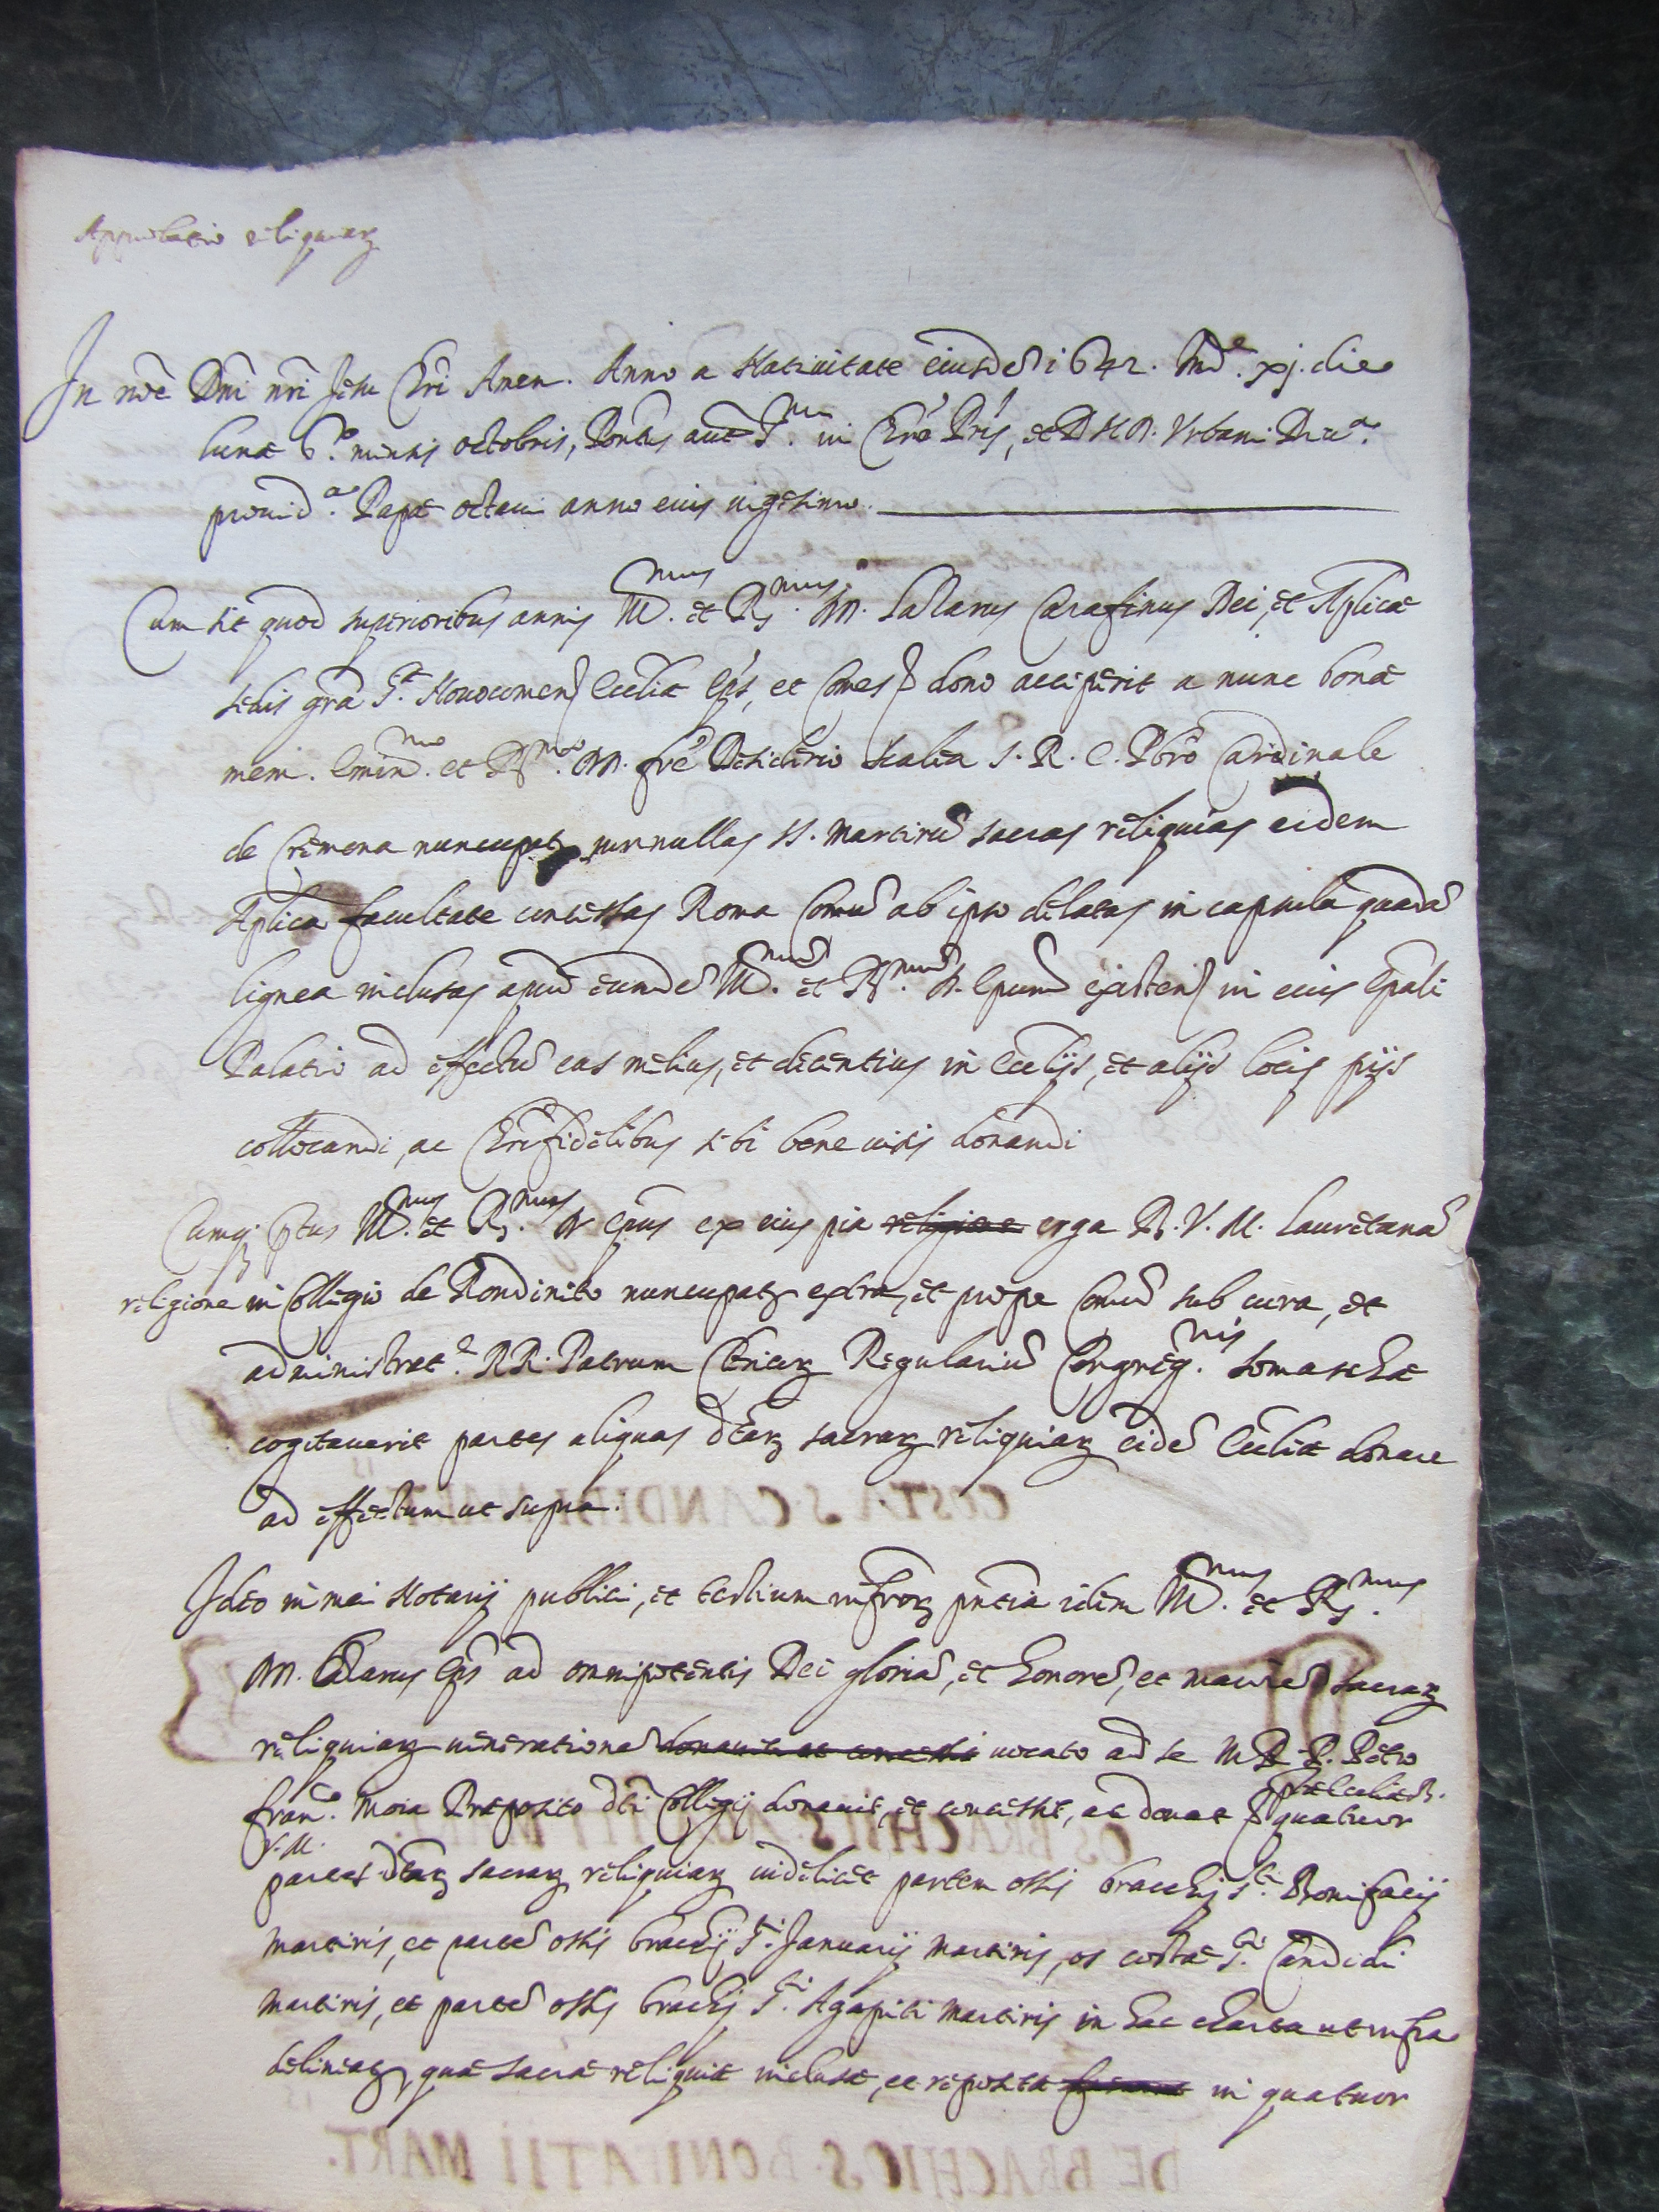 Approbatio reliquiarꝫ
In noē Dnī nrī Jesu Chrī Amen. Anno a Nativitate eiusdē 1642. Indᵉ. xj. die
lunæ 6.º mensis octobris, Pontus autē S.ᵐⁱ in Chrō Pris, et D.N.D. Urbani Divᵃ.
provid.ᵃ Papæ octavi anno eius vigesimo.
Cum sit quod superioribus annis Ill.ᵐᵘˢ et R.ᵐᵘˢ D.D. Lazarus Carafinus Dei, et Aplicæ
sedis grā S.ᵗᵉ Novocomenˢ Eccliæ Epūs, et Comes dono acceperit a nunc bonæ
mem. Emin.ᵐᵒ et R.ᵐᵒ D.D. frē Desiderio Scalia S.R.E. Pbrō Cardinale
de Cremona nuncupatꝫ nonnullas SS. Martirū sacras reliquias eidem
Aplica facultate concessas Roma Comū ab ipso delatas in capsula quadā
lignea inclusas apud eumdē Ill.ᵐᵘ̄ et R.ᵐᵘ̄ D. Epum existenˢ in eius Epali
Palatio ad effectū eas melius, et decentius in Eccliis, et alijs locis pijs
collocandi, ac Chrifidelibus sibi bene visis donandi
Cumq; ptus Ill.ᵐᵘˢ et R.ᵐᵘˢ D. Epūs ex eius pia religione erga B.V.M. Lauretanā
religione in Collegio de Rondinito nuncupatꝫ extra, et prope Comū sub cura, et
administrat.ᵉ RR. Patrum Clericorꝫ Regulariū Congreg.ⁿⁱˢ Somaschæ
cogitaverit partes aliquas dtarꝫ sacrarꝫ reliquiarꝫ eidē Eccliæ donare
ad effectum ut supra.
Ideo in mei Notarij publici, et testium infrorꝫ pntia idem Ill.ᵐᵘˢ et R.ᵐᵘˢ
D.D. Lazarus Epūs ad omnipotentis Dei gloriā, et honorē, et maiorē sacrarꝫ
reliquiarꝫ venerationē donavit et concessit vocato ad se M.R.P. Petro
franᶜᵒ. Moia Præposito dti Collegij donavit, et concessit, ac donat ptæ Eccliæ B.
V.M. quatuor
partes dtarꝫ sacrarꝫ reliquiarꝫ videlicet partem ossis bracchij S.ᵗⁱ Bonifacij
Martiris, et partē ossis bracchij S.ᵗⁱ Januarij Martiris, os costæ S.ᵗⁱ Candidi
Martiris, et partē ossis brachij S.ᵗⁱ Agapiti Martiris in hac charta ut infra
delineatꝫ, quæ sacræ reliquiæ inclusæ, et repositæ in quatuor